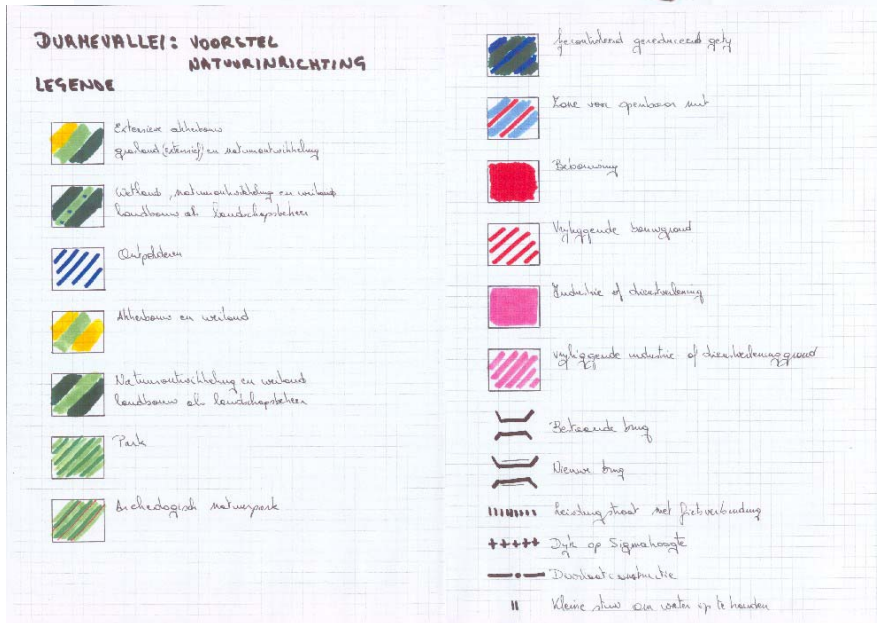 DURMEVALLEI: VOORSTEL
NATUURINRICHTING
LEGENDE
Extensieve akkerbouw
grasland (extensief) en natuurontwikkeling
Wetland, natuurontwikkeling en weiland
landbouw als landschapsbeheer
Ontpolderen
Akkerbouw en weiland
Natuurontwikkeling en weiland
landbouw als landschapsbeheer
Park
Archeologisch natuurpark
Gecontroleerd gereduceerd getij
Zone voor openbaar nut
Bebouwing
Vrijliggende bouwgrond
Industrie of dienstverlening
Vrijliggende industrie of dienstverleninggrond
Bestaande brug
Nieuwe brug
Leidingstraat met fietsverbinding
Dijk op Sigmahoogte
Doorlaatconstructie
Kleine stuw om water op te houden